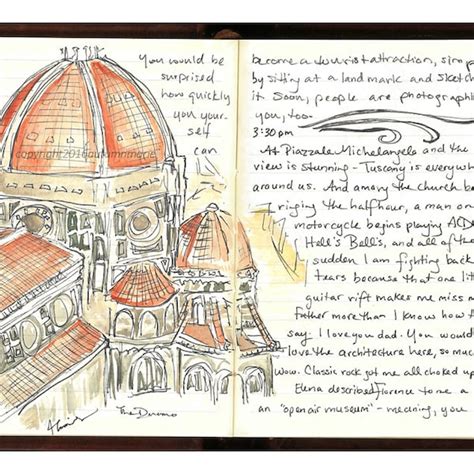 you would be
surprised
how quickly
you your-
self
can
copyright2016
The Duomo
become a tourist attraction, simp
by sitting at a landmark and sketch
it. Soon, people are photographi
you, too.
3:30 pm
At Piazzale Michelangelo and the
view is stunning - Tuscany is everywhe
around us. And among the church be
ringing the half hour, a man on
motorcycle begins playing ACD
Hell's Bell's, and all of the
sudden I am fighting back
tears because that one lit
guitar rift makes me miss m
father more than I know how t
say. I love you dad. You would
love the architecture here, so muc
wow. Classic rock got me all choked up
Elena described Florence to me a
an "open air museum" - meaning, you